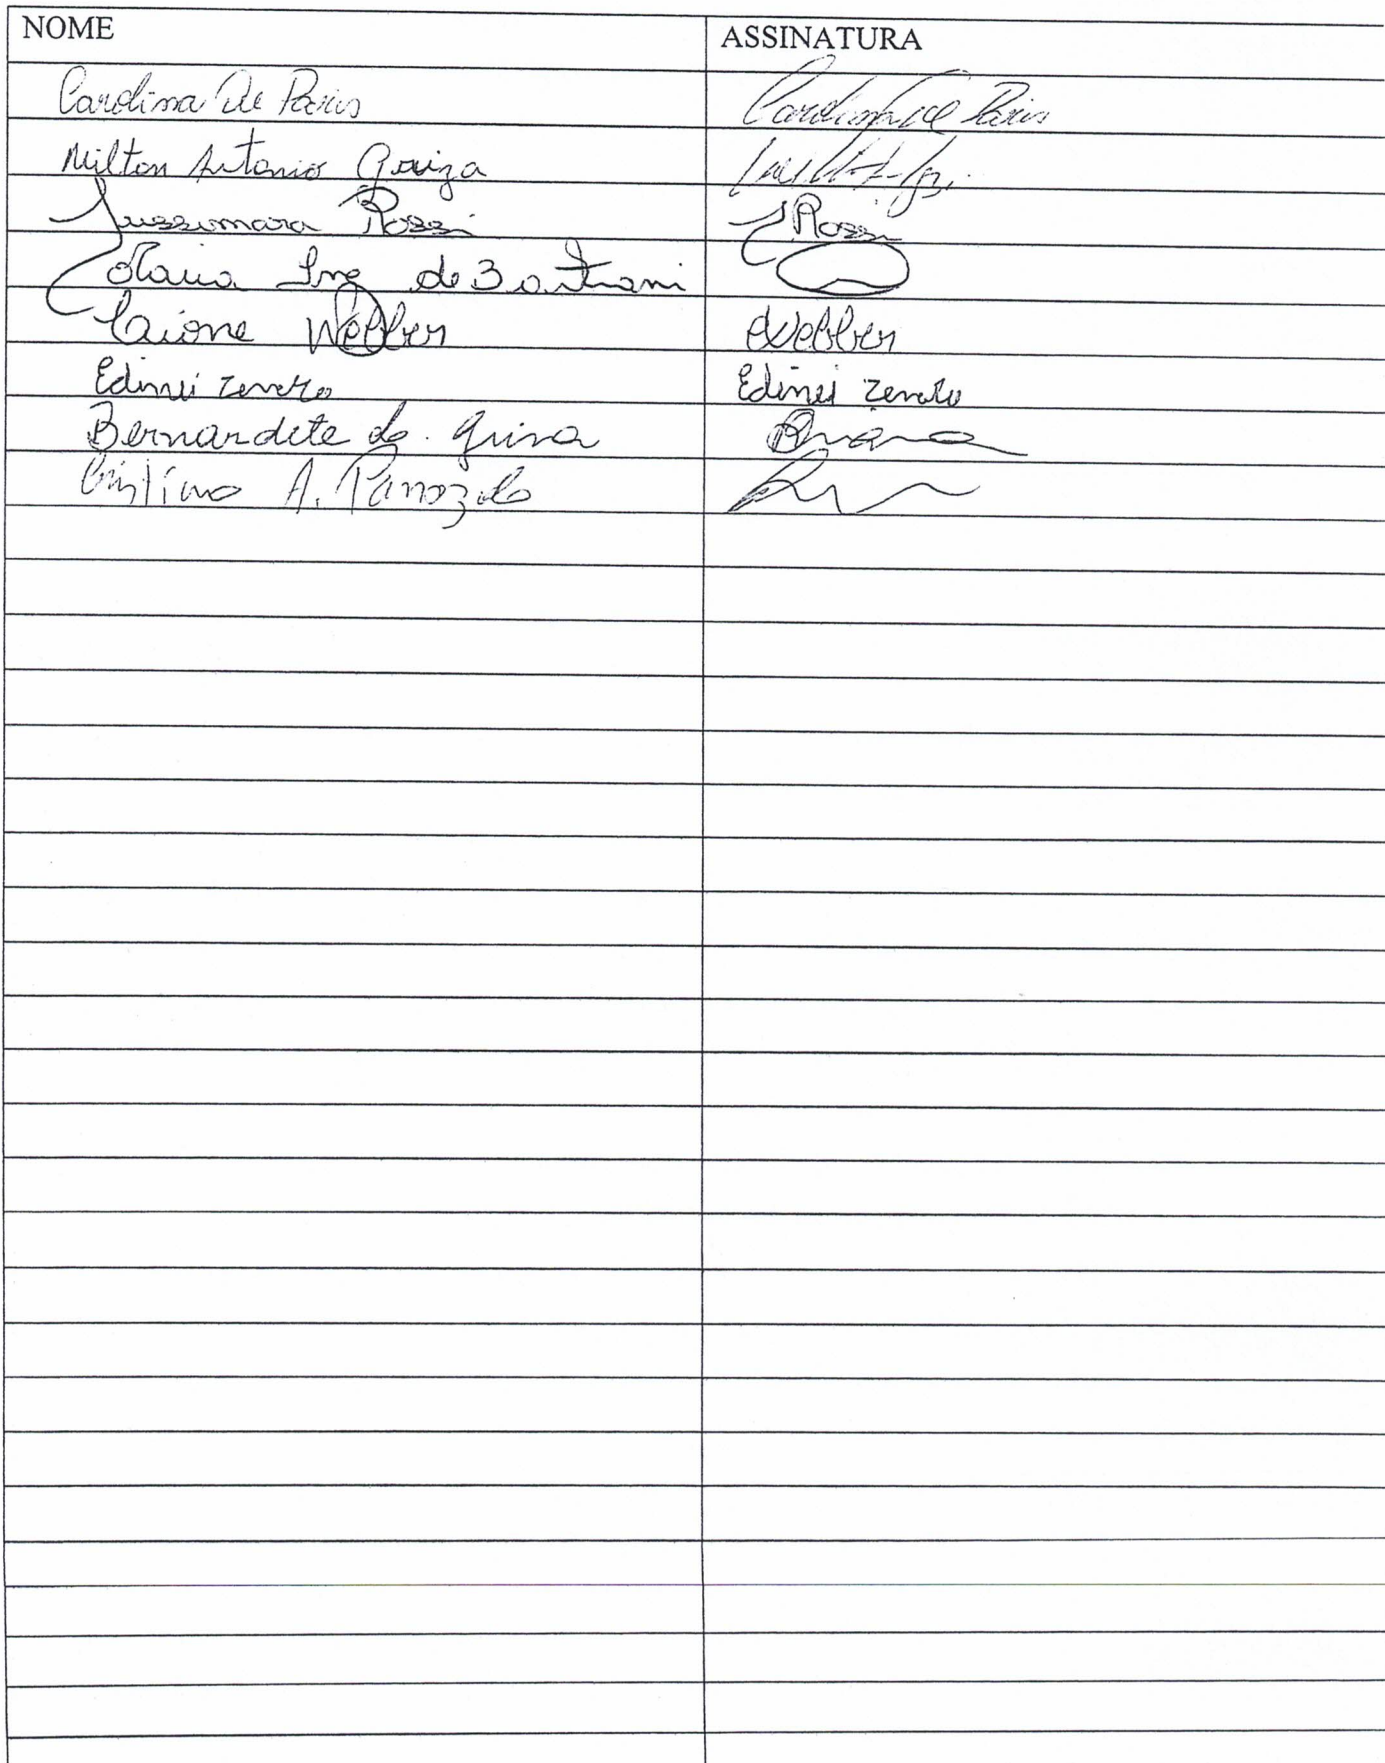 NOME ASSINATURA
Carolina De Paris Carolina De Paris
Milton Antonio Griza
Jussimara Rossi JRossi
de Bortriani
Caione Webber CWebber
Edinei Zenato Edinei Zenato
Bernardete de
Cristiano A. Panozzo